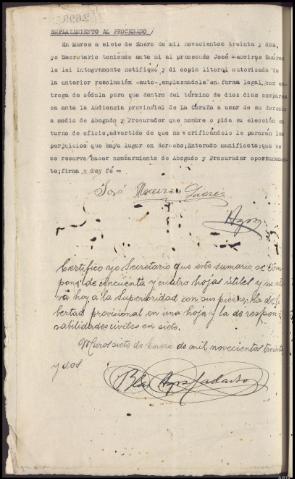 EMPLAZAMIENTO AL PROCESADO /
En Muros a siete de Enero de mil novecientos treinta y dos,
yo Secretario teniendo ante mi al procesado José
la lei integramente notifiqué y di copia literal autorizada de
la anterior resolución -auto-, emplazándole en forma legal, con en-
trega de cédula para que dentro del término de diez dias comparez-
ca ante la Audiencia provincial de La Coruña a usar de su derecho
a medio de Abogado y Procurador que nombre o pida su elección en
turno de oficio, advertido de que no verificándolo le pararán los
perjuicios que haya lugar en derecho; Enterado manifiesta: que
se reserva hacer nombramiento de Abogado y Procurador oportunamen-
te; firma y doy fé =
José
Certifico yo Secretario que este sumario se com
pone de cincuenta y cuatro hojas útiles y se
va hoy a la Superioridad con sus piezas la de li
bertad provisional en una hoja y la de respon
sabilidades civiles en siete.
Muros siete de Enero de mil novecientos treinta
y dos